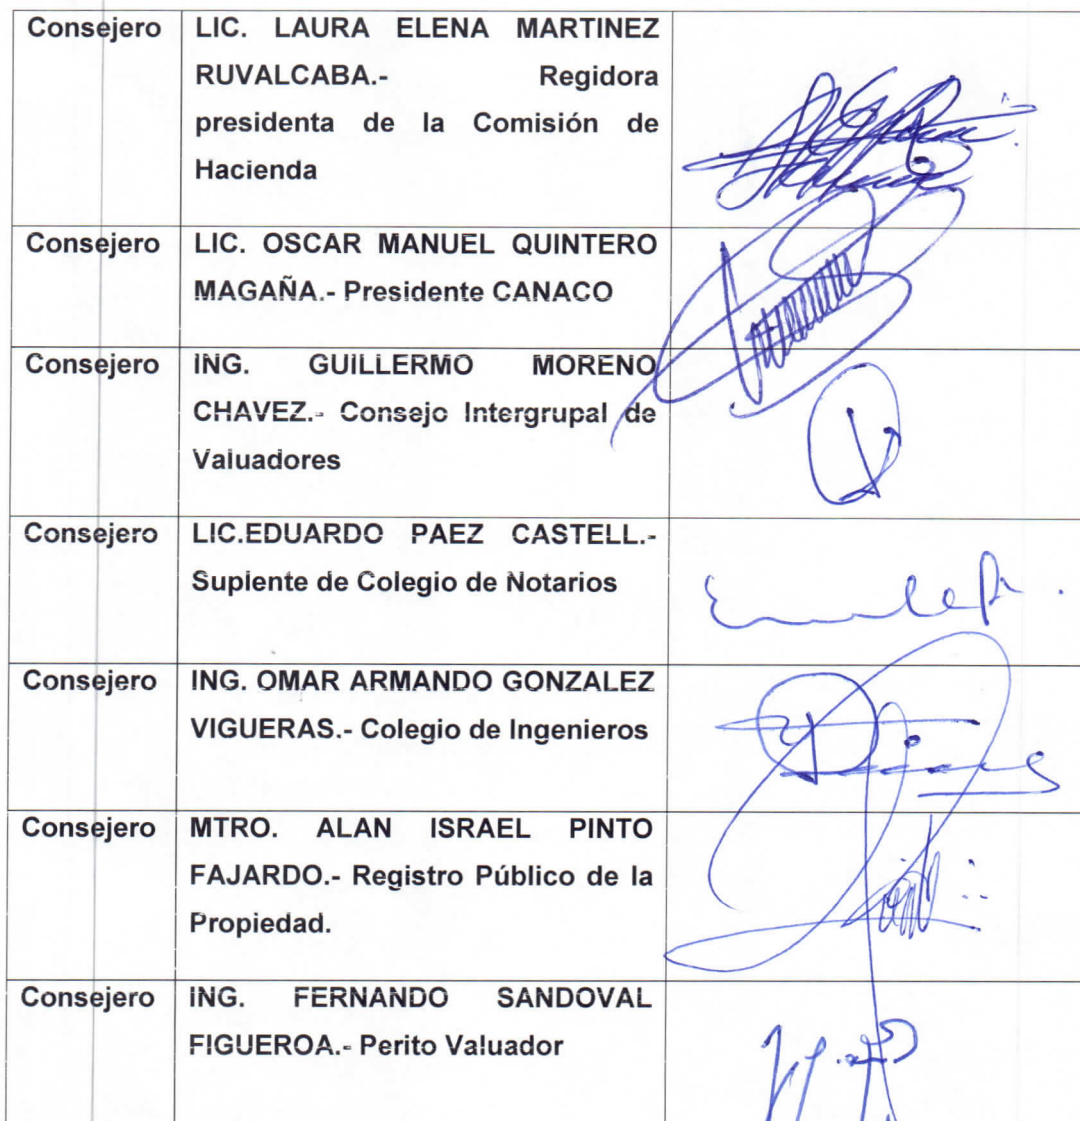 Consejero LIC. LAURA ELENA MARTINEZ
RUVALCABA.- Regidora
presidenta de la Comisión de
Hacienda
Consejero LIC. OSCAR MANUEL QUINTERO
MAGAÑA.- Presidente CANACO
Consejero ING. GUILLERMO MORENO
CHAVEZ.- Consejo Intergrupal de
Valuadores
Consejero LIC.EDUARDO PAEZ CASTELL.-
Suplente de Colegio de Notarios
Consejero ING. OMAR ARMANDO GONZALEZ
VIGUERAS.- Colegio de Ingenieros
Consejero MTRO. ALAN ISRAEL PINTO
FAJARDO.- Registro Público de la
Propiedad.
Consejero ING. FERNANDO SANDOVAL
FIGUEROA.- Perito Valuador